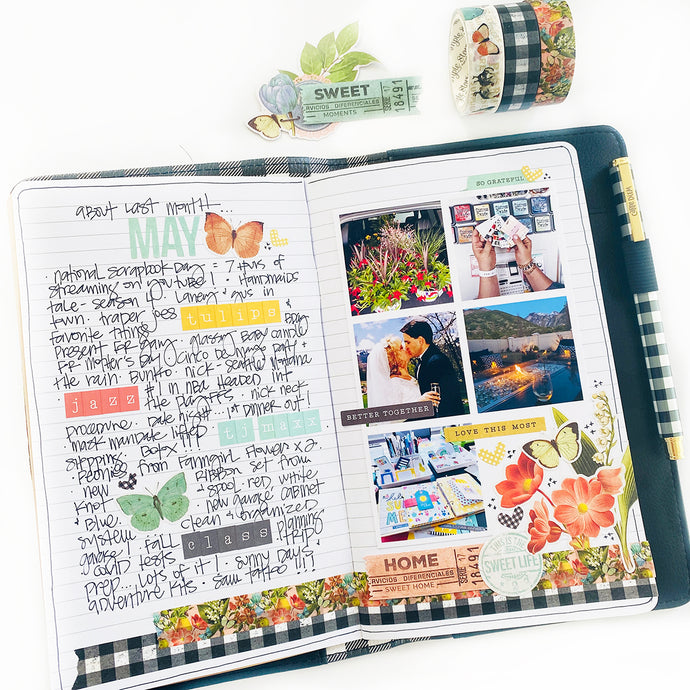 SWEET
RVICIOS DIFERENCIALES
MOMENTS
SERIE 17
18491
about last month
MAY
national scrapbook day = 7 hours of
streaming on youtube! Handmaids
tale - season 4! Laney & gus in
town. traper joes tulips &
favorite things
present for gary. glassy baby candle
for mother's day! Cinco de mayo party &
the rain. Bunko. nick - seattle, montana
jazz #1 in NBA headed into
the playoffs. nick neck
procedure. Date night... dinner out!
mask mandate lifted tj-maxx
shopping. Botox
Peonies from farmgirl flowers x2
new ribbon set from
knot & spool. red, white
& Blue. new garage cabinet
system clean & organized
garage! fall class planning
covid tests trip
prep... lots of it! sunny days
adventure kits. sam tattoo!!!
SO GRATEFUL
BETTER TOGETHER
LOVE THIS MOST
HOME
RVICIOS DIFERENCIALES
SWEET HOME
SERIE 17
18491
THIS IS THE
SWEET LIFE